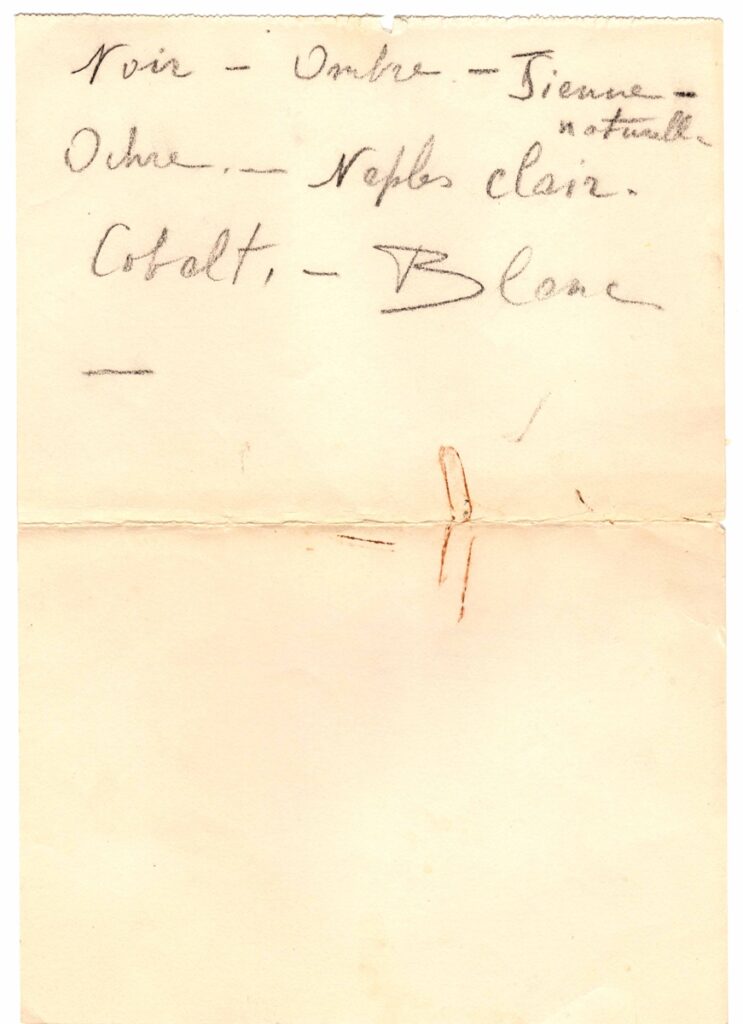 Noir - Ombre - Sienne -
naturelle
Ochre. - Naples clair.
Cobalt. - Blanc
—